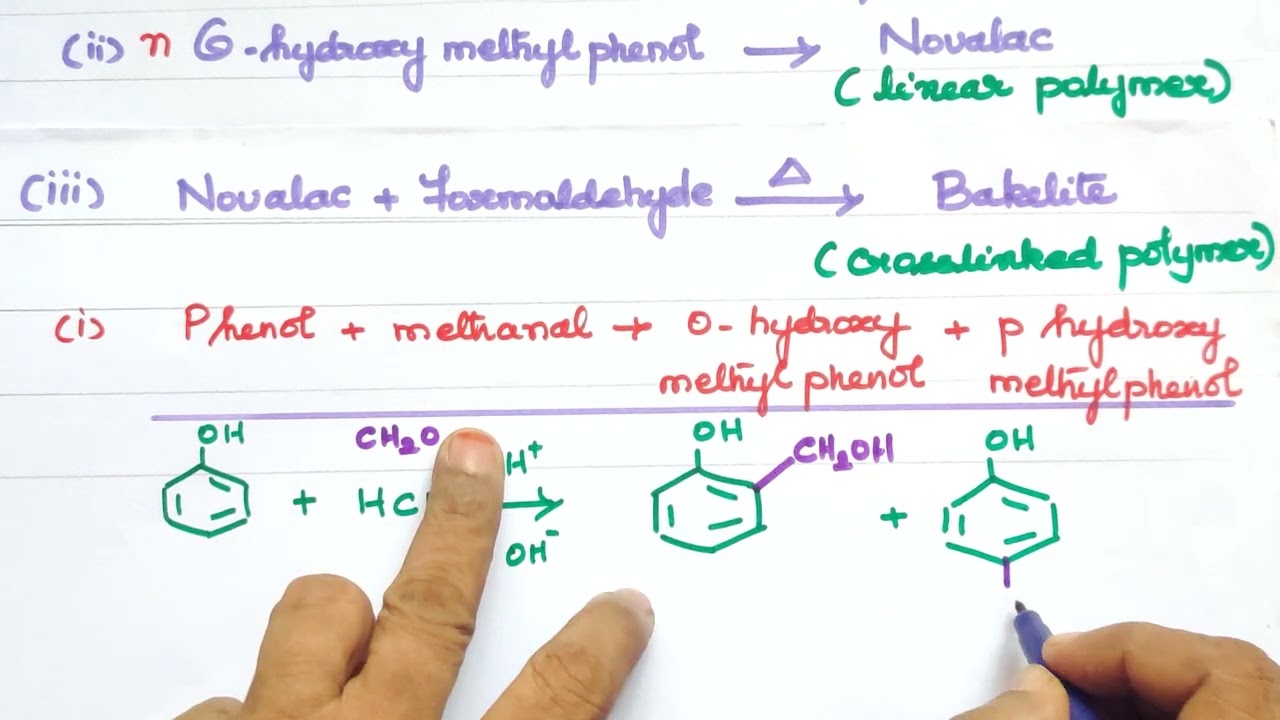 (ii) n O-hydroxy methyl phenol → Novalac
(linear polymer)
(iii) Novalac + Formaldehyde Δ→ Bakelite
(crosslinked polymer)
(i) Phenol + methanal → O-hydroxy + p hydroxy
methyl phenol methyl phenol
OH CH₂O H⁺ OH CH₂OH OH
+ HC → +
OH⁻